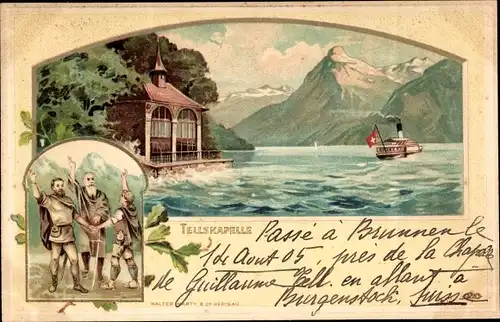 TELLSKAPELLE
Passé à Brunnen le
1er Aout 05, près de la Chapelle
de Guillaume Tell. en allant à
Burgenstock, suisse
WALTER MARTY & Co HERISAU